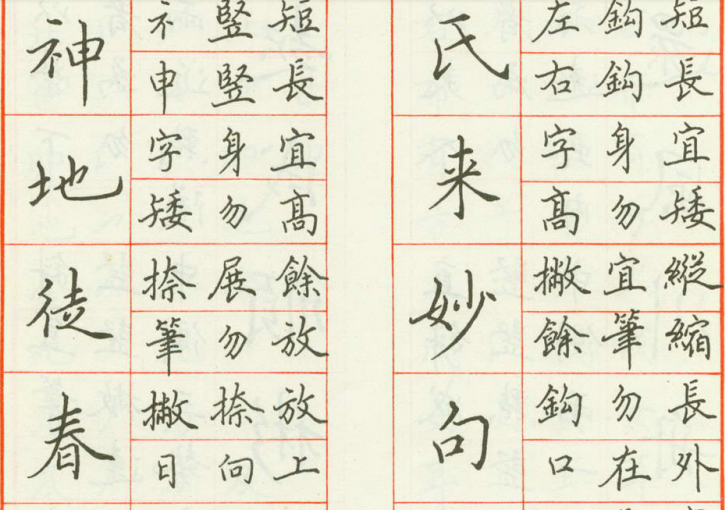 短長宜矮縱縮長外
鈎鈎身勿宜筆勿在
左右字高撇餘鈎口
氏来妙句
短長宜高餘放放上
豎豎身勿展勿捺向
礻申字矮捺筆撇日
神地徒春